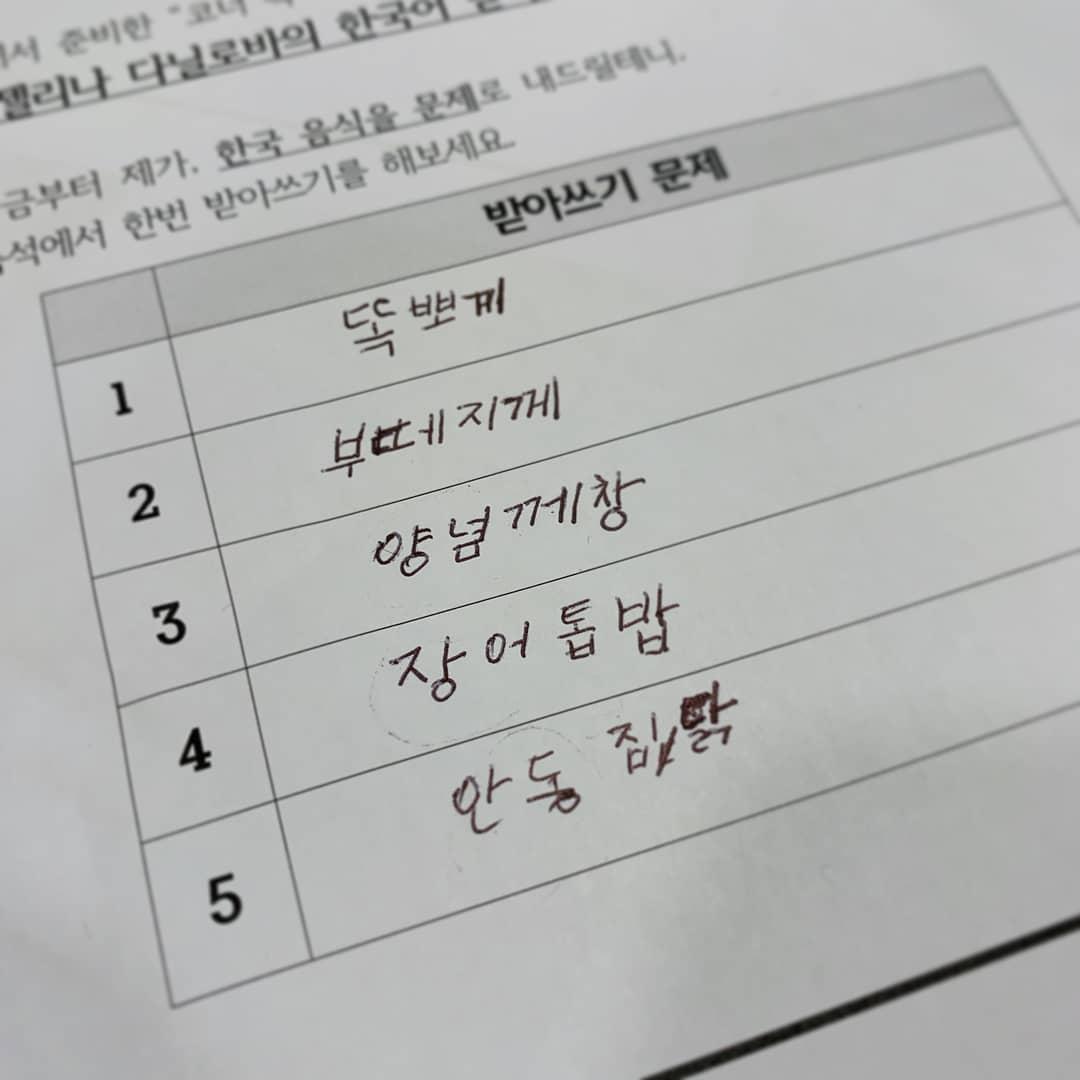 준비한 "코너
젤리나 다닐로바의 한국어
금부터 제가. 한국 음식을 문제로 내드릴테니.
석에서 한번 받아쓰기를 해보세요.
받아쓰기 문제
1 똑뽀끼
2 부떼지께
3 양념께창
4 장어톱밥
5 안동 찝딱